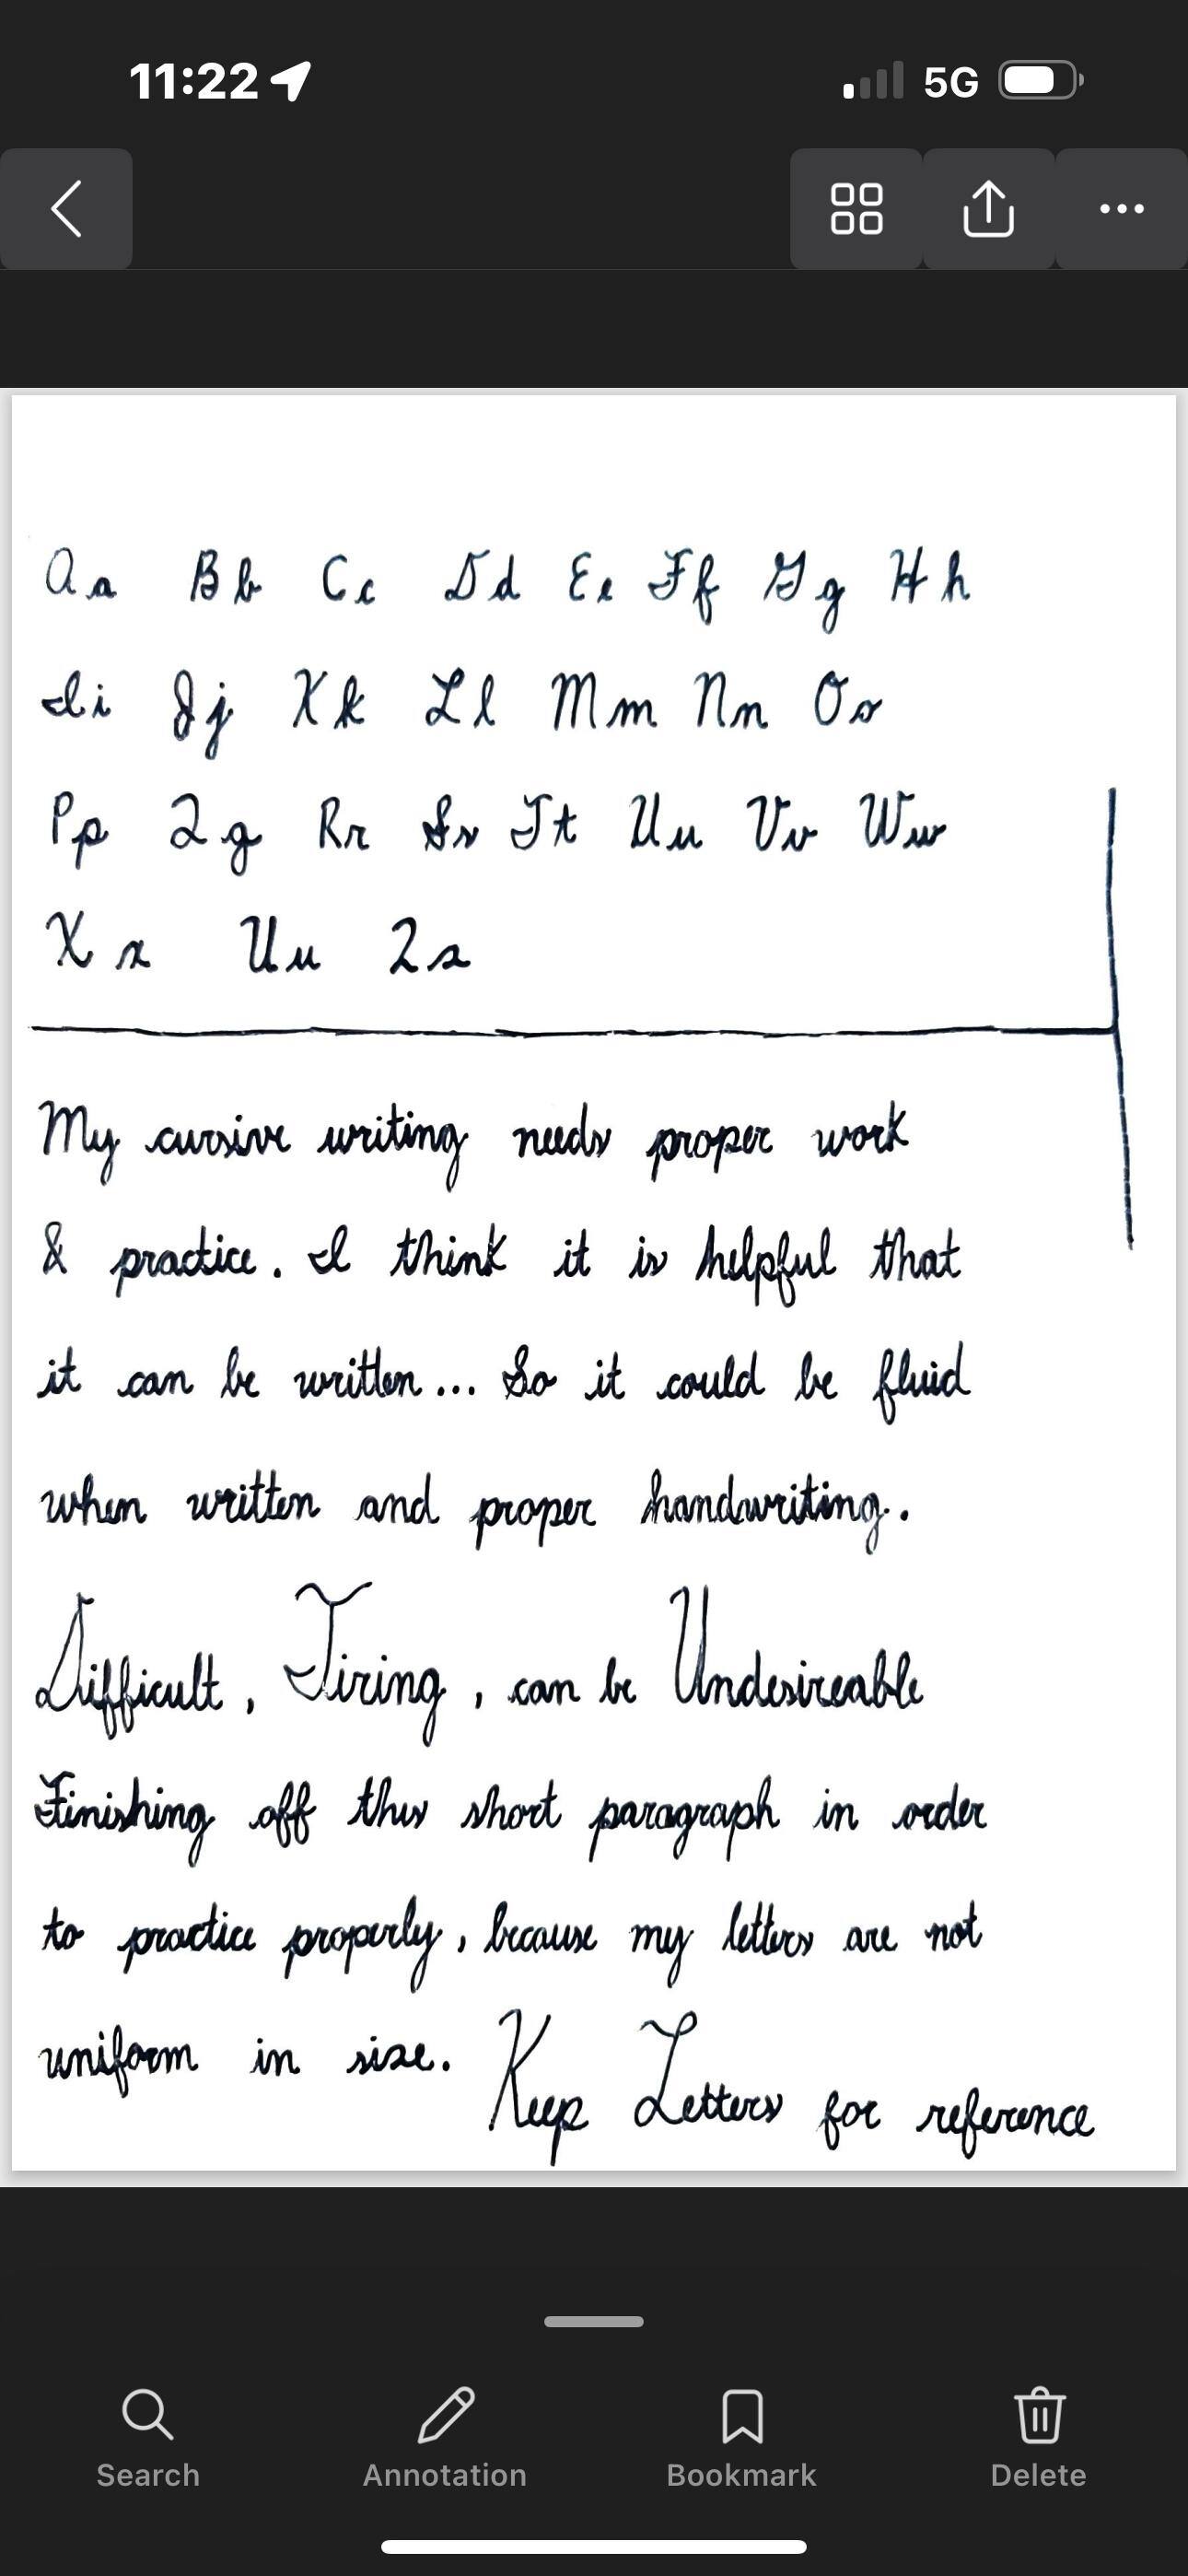 11:22 5G
Aa Bb Cc Dd Ee Ff Gg Hh
Ii Jj Kk Ll Mm Nn Oo
Pp Qq Rr Ss Tt Uu Vv Ww
Xx Uu Zz
My cursive writing needs proper work
& practice. I think it is helpful that
it can be written... So it could be fluid
when written and proper handwriting.
Difficult, Tiring, can be Undesireable
Finishing off this short paragraph in order
to practice properly, because my letters are not
uniform in size. Keep Letters for reference
Search Annotation Bookmark Delete